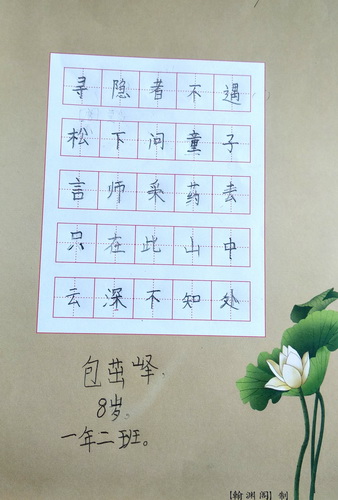 寻隐者不遇
松下问童子
言师采药去
只在此山中
云深不知处
包茁峄.
8岁.
一年二班。
【翰渊阁】制